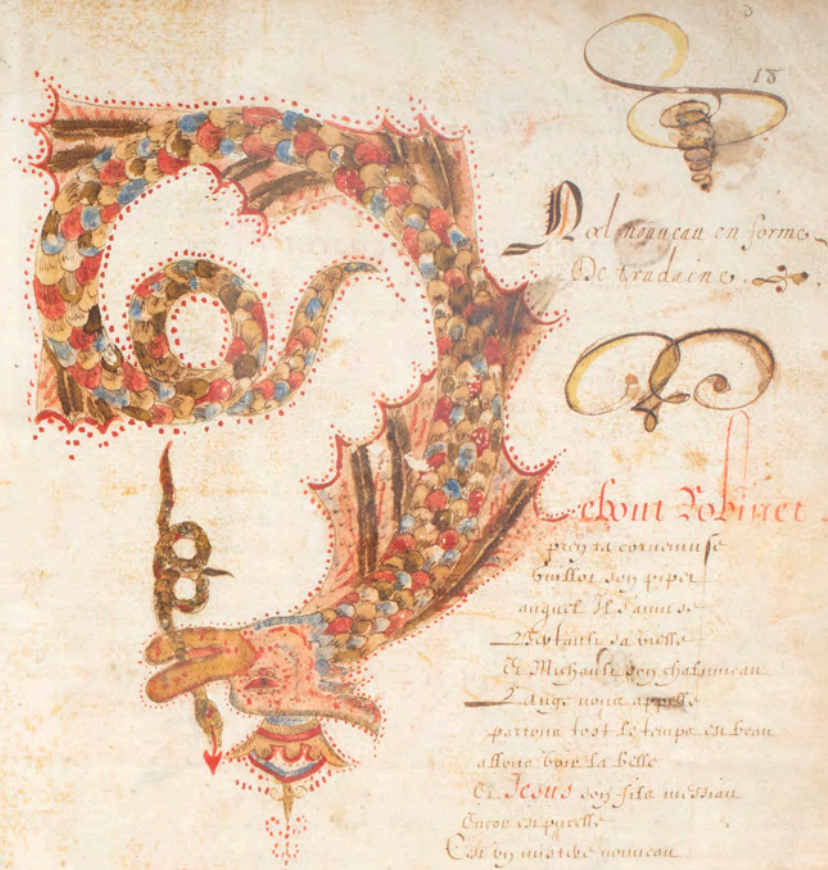 18
Noel nouueau en forme
De trudaine.
Debout Robinet
pren ta cornemuse
Guillot son pipet
auquel Il s'amuse
sa vielle
Et Michault son chalumeau
L'ange nous appelle
partons tost le temps est beau
allons voir la belle
Et Jesus son filz messiau
Encor est pucelle
C'est vn mistere nouueau